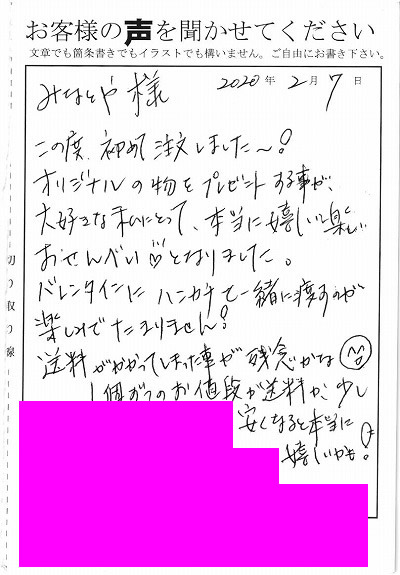 お客様の声を聞かせてください
文章でも箇条書きでもイラストでも構いません。ご自由にお書き下さい。
みなとや様 2020年2月7日
この度、初めて注文しました〜!
オリジナルの物をプレゼントする事が、
大好きな私にとって、本当に嬉しい楽しい
おせんべい♡となりました。
バレンタインにハンカチと一緒に渡すのが
楽しみでたまりません!
送料がかかってしまった事が残念かな
1個ずつのお値段か送料が、少し
安くなると本当に
嬉しいかも!
切り取り線